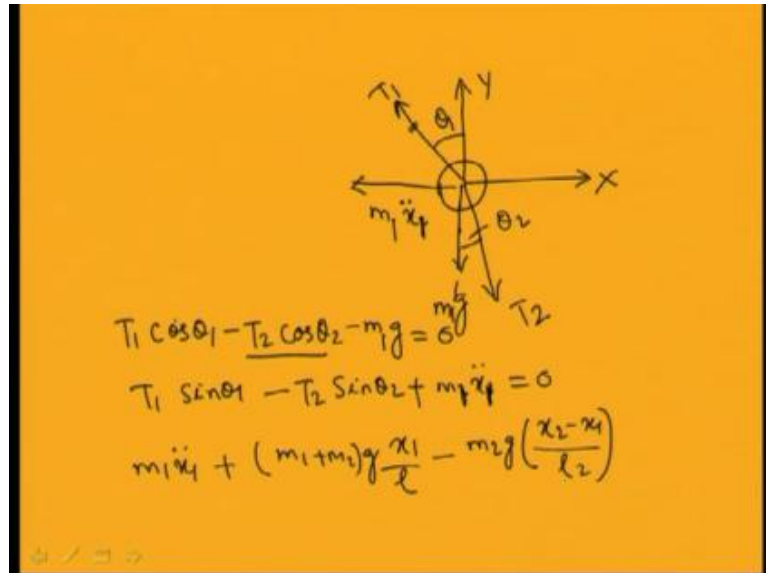 Y
T1
θ1
X
m1ẍ1
θ2
m1g
T2
T1 cosθ1 - T2 cosθ2 - m1g = 0
T1 sinθ1 - T2 sinθ2 + m1ẍ1 = 0
m1ẍ1 + (m1+m2)g x1/l - m2g(x2-x1/l2)